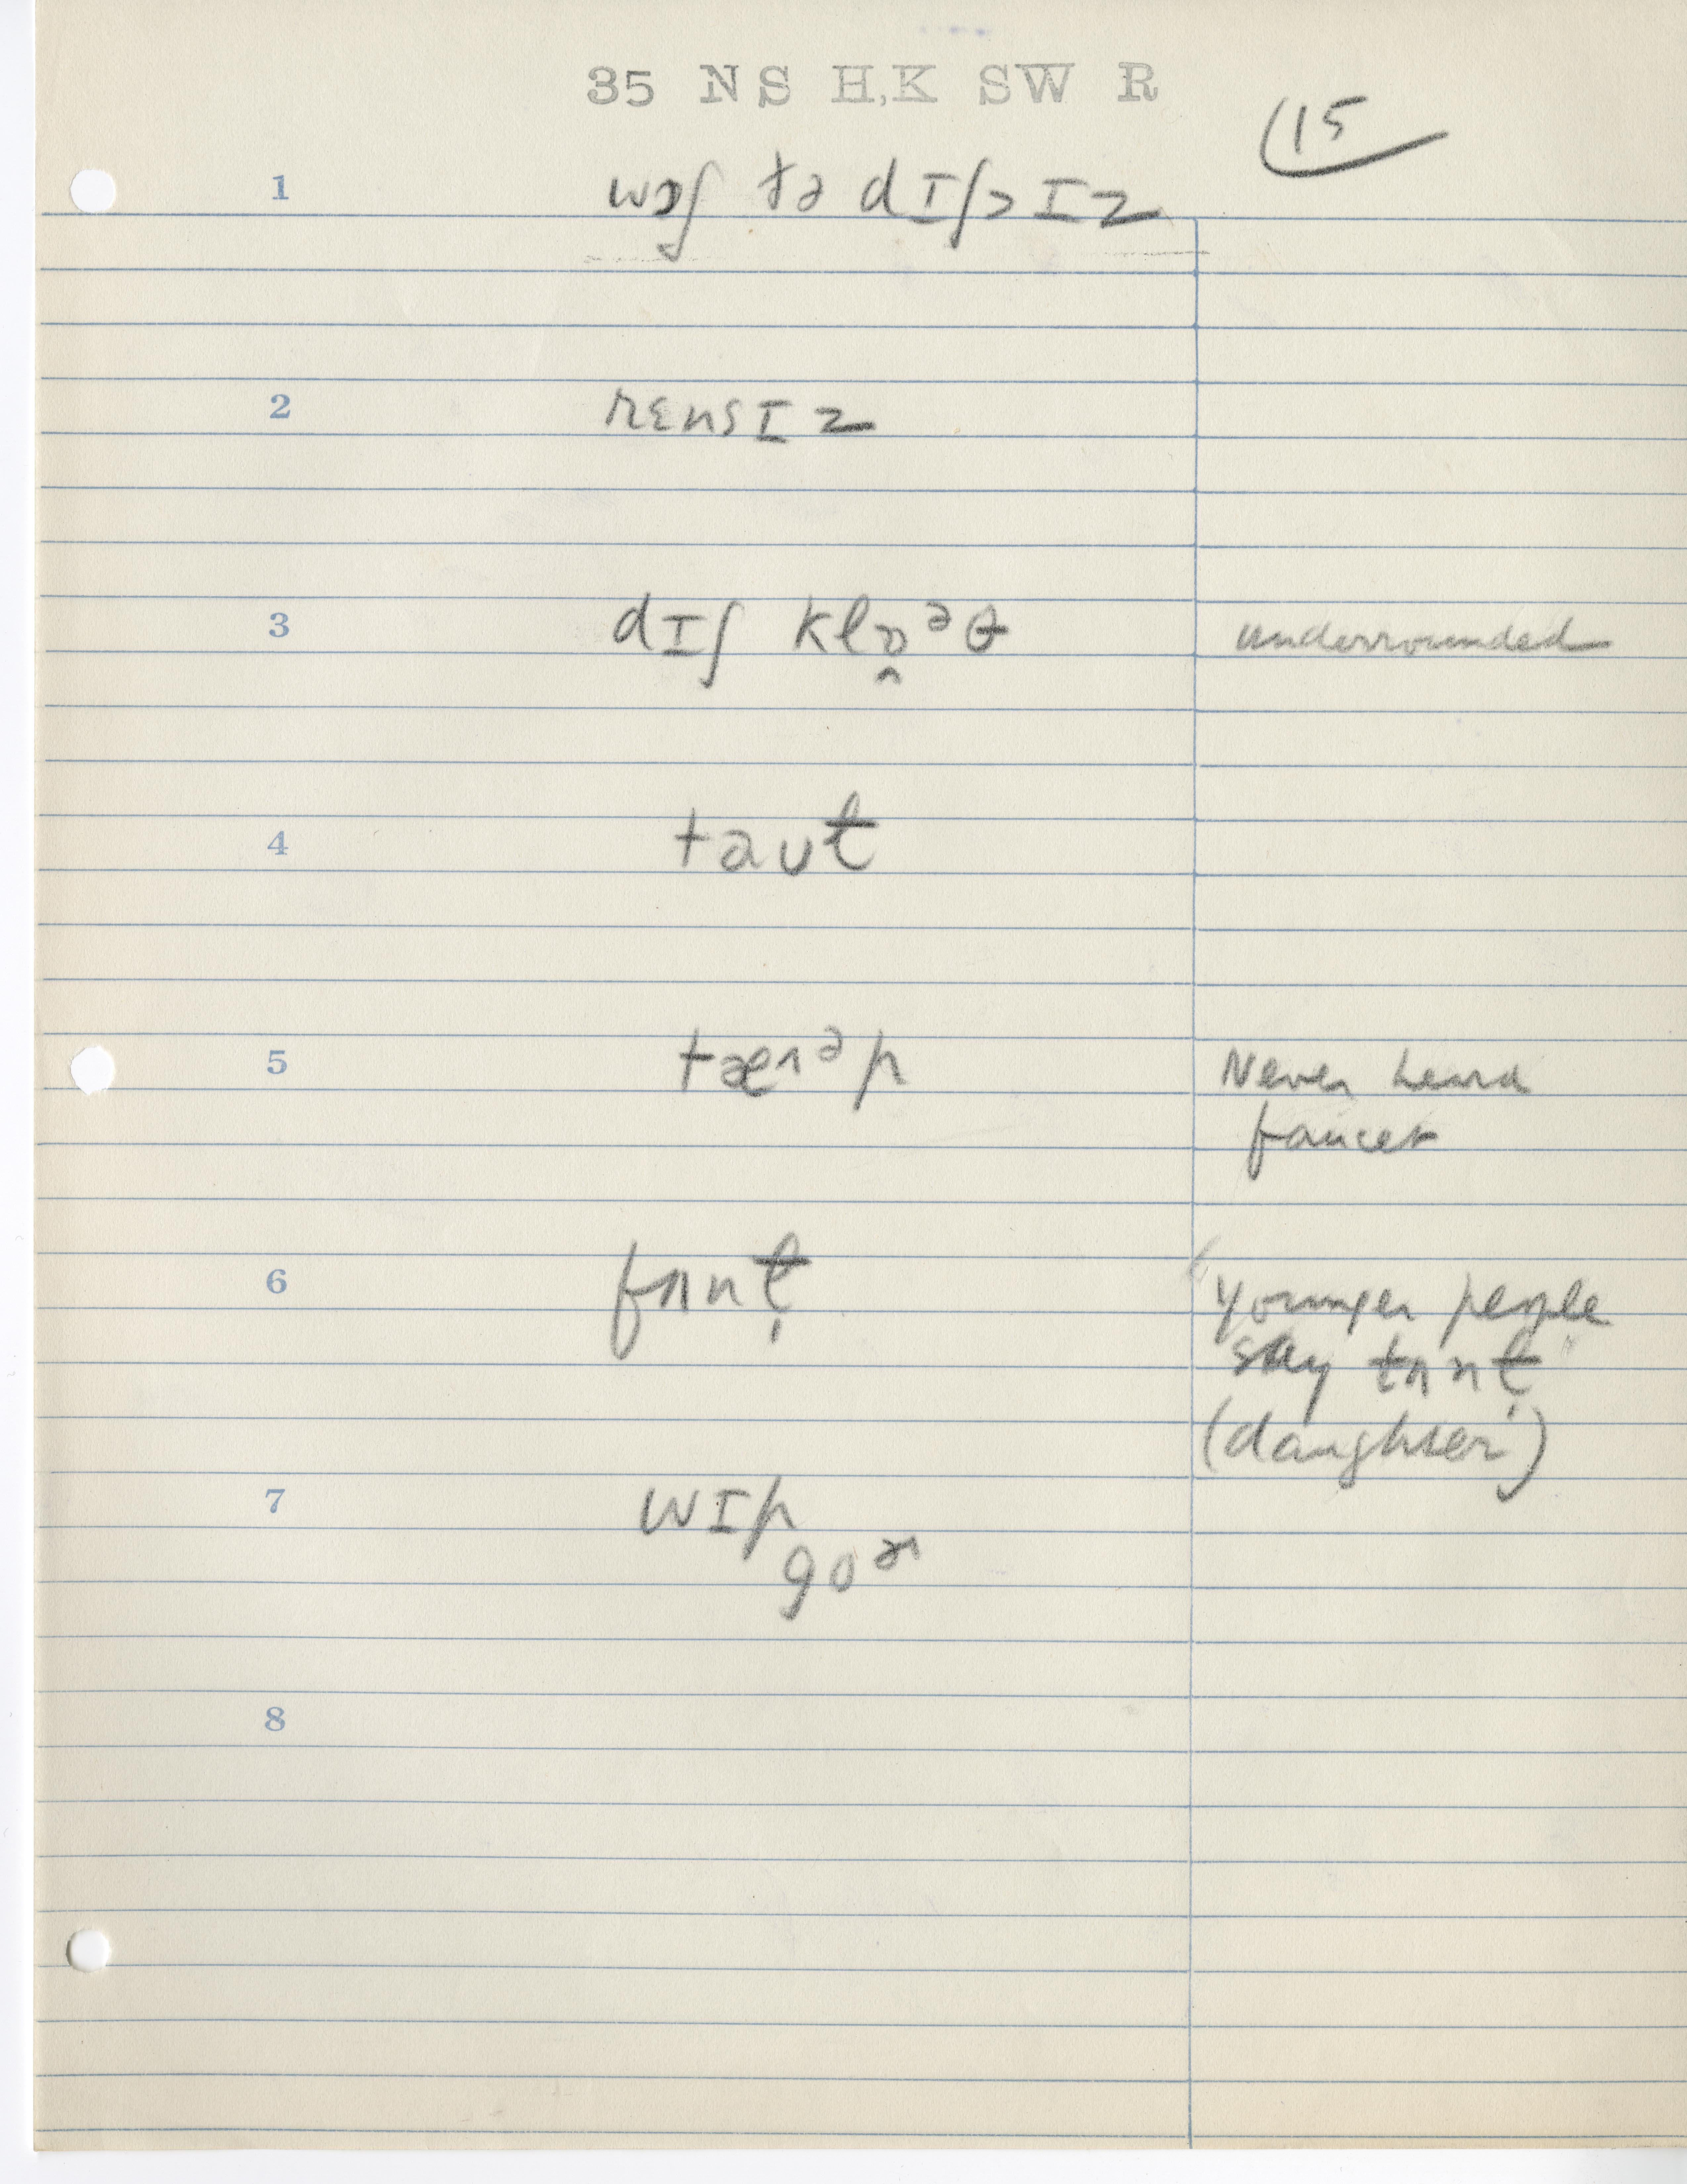 35 NS H,K SW R
15
1 wɔʃ tə dɪʃɪz
2 rɛnsɪz
3 dɪʃ klɒ̭ᵊθ underrounded
4 taʊt
5 tæɪᵊp Never heard
faucet
6 fʌnt̩ younger people
say tʌnt̩
(daughter)
7 wɪp
goɚ
8